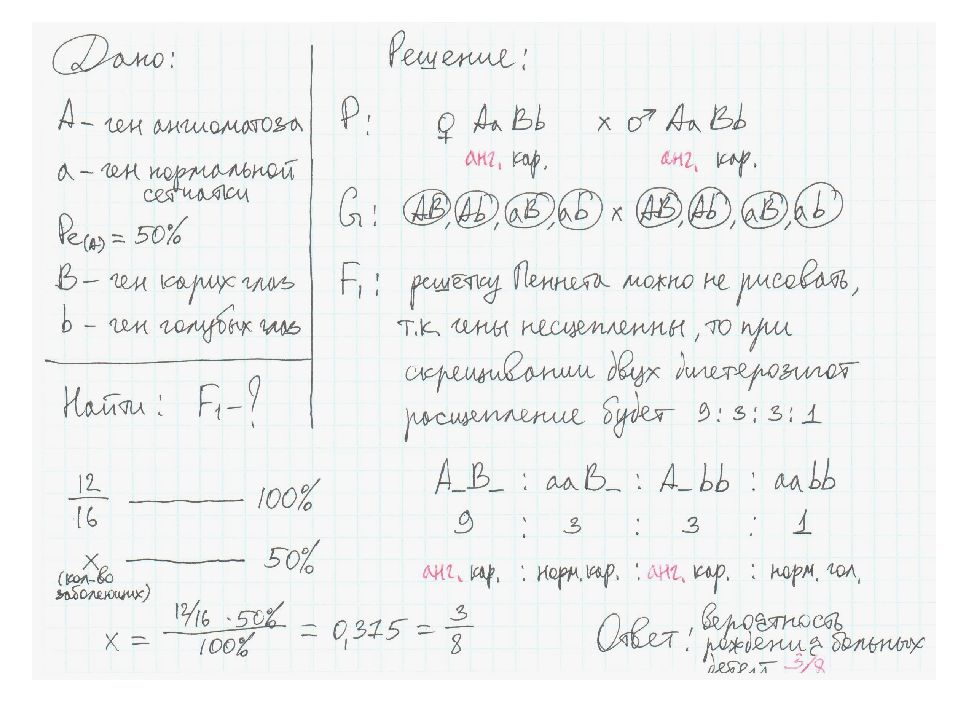 Дано:
А – ген ангиоматоза
а – ген нормальной
сетчатки
Pe(А) = 50%
В – ген карих глаз
b – ген голубых глаз
Найти: F₁ – ?
12/16 — 100%
x — 50%
(кол-во
заболевших)
x = 12/16 · 50% / 100% = 0,375 = 3/8
Решение:
P: ♀ Aa Bb x ♂ Aa Bb
анг. кар. анг. кар.
G: AB, Ab, aB, ab x AB, Ab, aB, ab
F₁: решётку Пеннета можно не рисовать,
т.к. гены несцепленны, то при
скрещивании двух дигетерозигот
расщепление будет 9 : 3 : 3 : 1
A_B_ : aaB_ : A_bb : aabb
9 : 3 : 3 : 1
анг. кар. : норм. кар. : анг. кар. : норм. гол.
Ответ: вероятность
рождения больных
детей 3/8